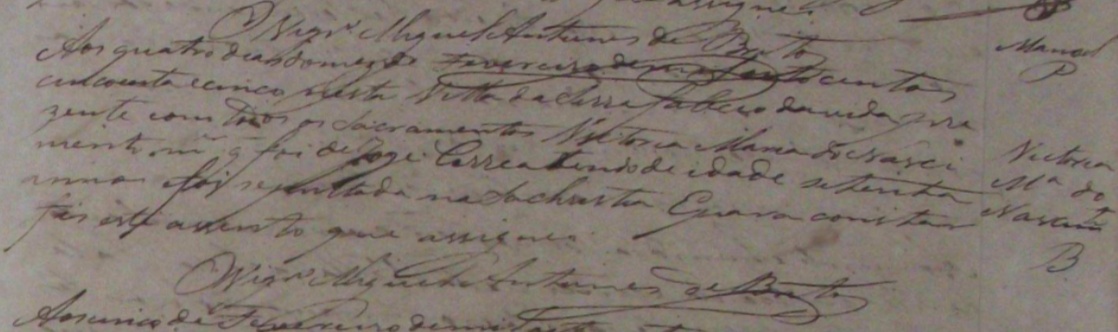 assignei.
Vigrº Miguel Antunes de Brito
Manoel
P
Aos quatro dias do mes de Fevereiro de mil oito centos
cincoenta e cinco nesta Villa da Serra faleceo da vida pre
zente com todos os Sacramentos Victoria Maria do Nasci
mento mer q foi de Jose Correa tendo de idade setenta
annos foi sepultada na Sachristia E para constar
fis este assento que assignei.
Victoria
Mª do
Nascimto
B
Vigrº Miguel Antunes de Brito
Aos cinco de Fevereiro de mil oito